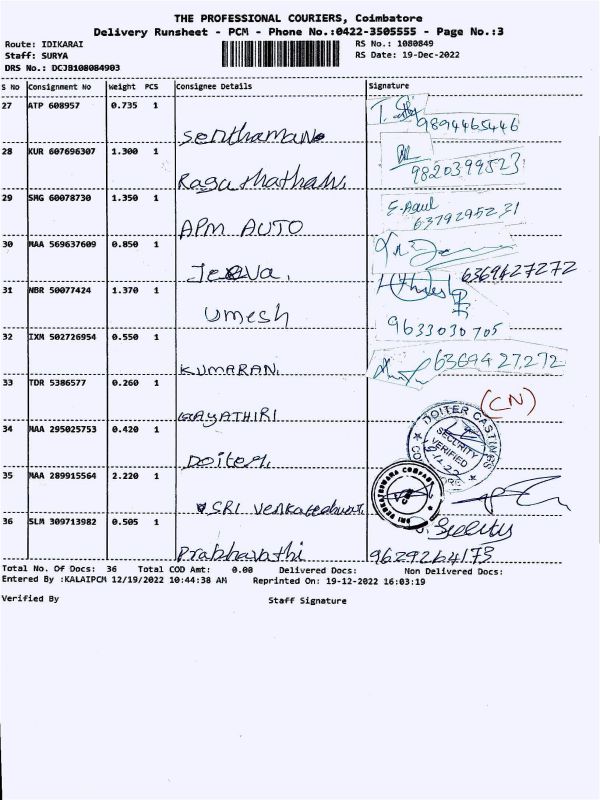 THE PROFESSIONAL COURIERS, Coimbatore
Delivery Runsheet - PCM - Phone No.:0422-3505555 - Page No.:3
Route: IDIKARAI RS No.: 1080849
Staff: SURYA RS Date: 19-Dec-2022
DRS No.: DCJB108084903
S No Consignment No Weight PCS Consignee Details Signature
27 ATP 608957 0.735 1
Senthaman 9894465446
28 KUR 607696307 1.300 1
Ragunathan 9820399523
29 SMG 60078730 1.350 1
APM AUTO 6379295231
30 MAA 569637609 0.850 1
Jeeva. 6369427272
31 NBR 50077424 1.370 1
Umesh 9633030705
32 IXM 502726954 0.550 1
KUMARAN 6369427272
33 TDR 5386577 0.260 1
GAYATHIRI (CN)
34 MAA 295025753 0.420 1
Doiter DOITER CASTINGS SECURITY VERIFIED
35 MAA 289915564 2.220 1
SRI Venkateshwara SRI VENKATESWARA COMPANY
36 SLM 309713982 0.505 1
Prabhavathi 9629264173
Total No. Of Docs: 36 Total COD Amt: 0.00 Delivered Docs: Non Delivered Docs:
Entered By :KALAIPCM 12/19/2022 10:44:38 AM Reprinted On: 19-12-2022 16:03:19
Verified By Staff Signature